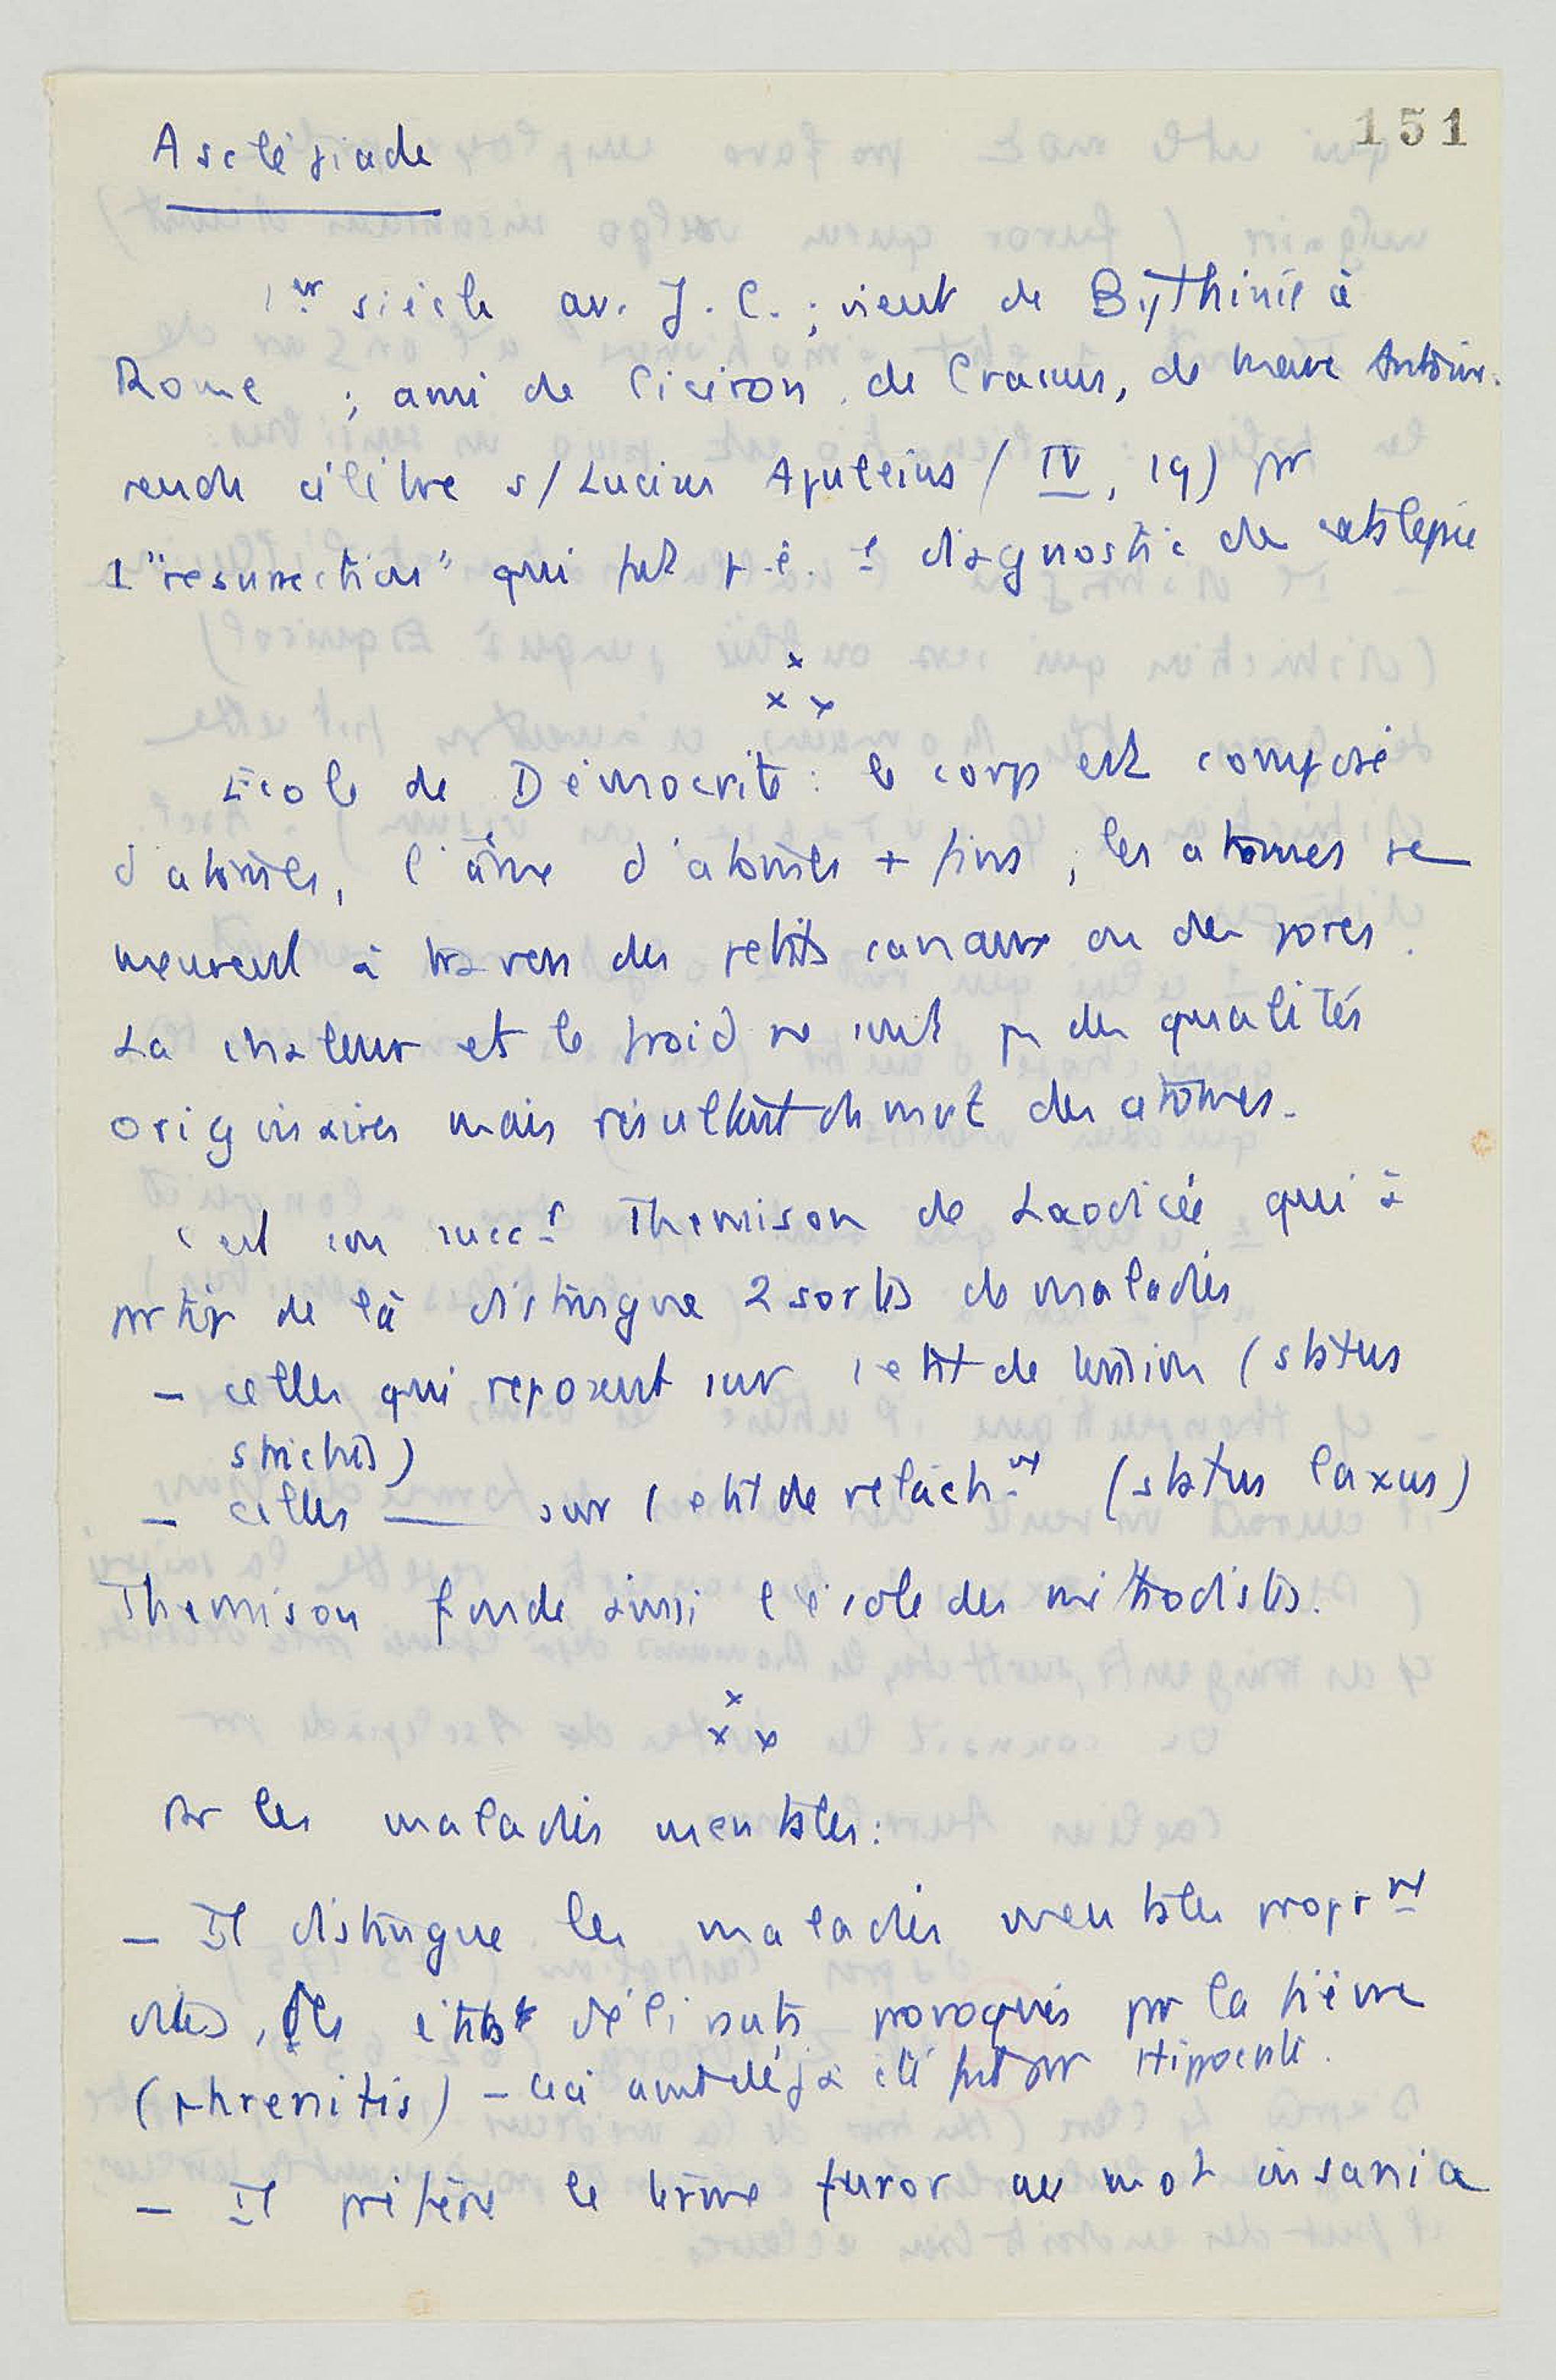 151
Asclépiade
1er siècle av. J. C. ; vient de Bythinie à
Rome ; ami de Cicéron, de Crassus, de Marc Antoine.
rendu célèbre s/ Lucius Apuleius (IV, 19) pr
1 "resurrection" qui fut p. ê. 1 diagnostic de catalepsie
x
x x
École de Démocrite : le corps est composé
d'atomes, l'âme d'atomes + fins ; les atomes se
meuvent à travers des petits canaux ou des pores.
La chaleur et le froid ne sont p des qualités
originaires mais résultent du mvt des atomes.
C'est son succr Themison de Laodicée qui à
partir de là distingue 2 sortes de maladies
- celles qui reposent sur l'etat de tension (status
strictus)
- celles — sur l'etat de relâchnt (status laxus)
Themison fonde ainsi l'école des méthodistes.
x
x x
Sr les maladies mentales :
- Il distingue les maladies mentales proprnt
dites, des états délirants provoqués par la fièvre
(phrenitis) - ceci avait déjà été fait par Hippocrate.
- Il préfère le terme furor au mot insania